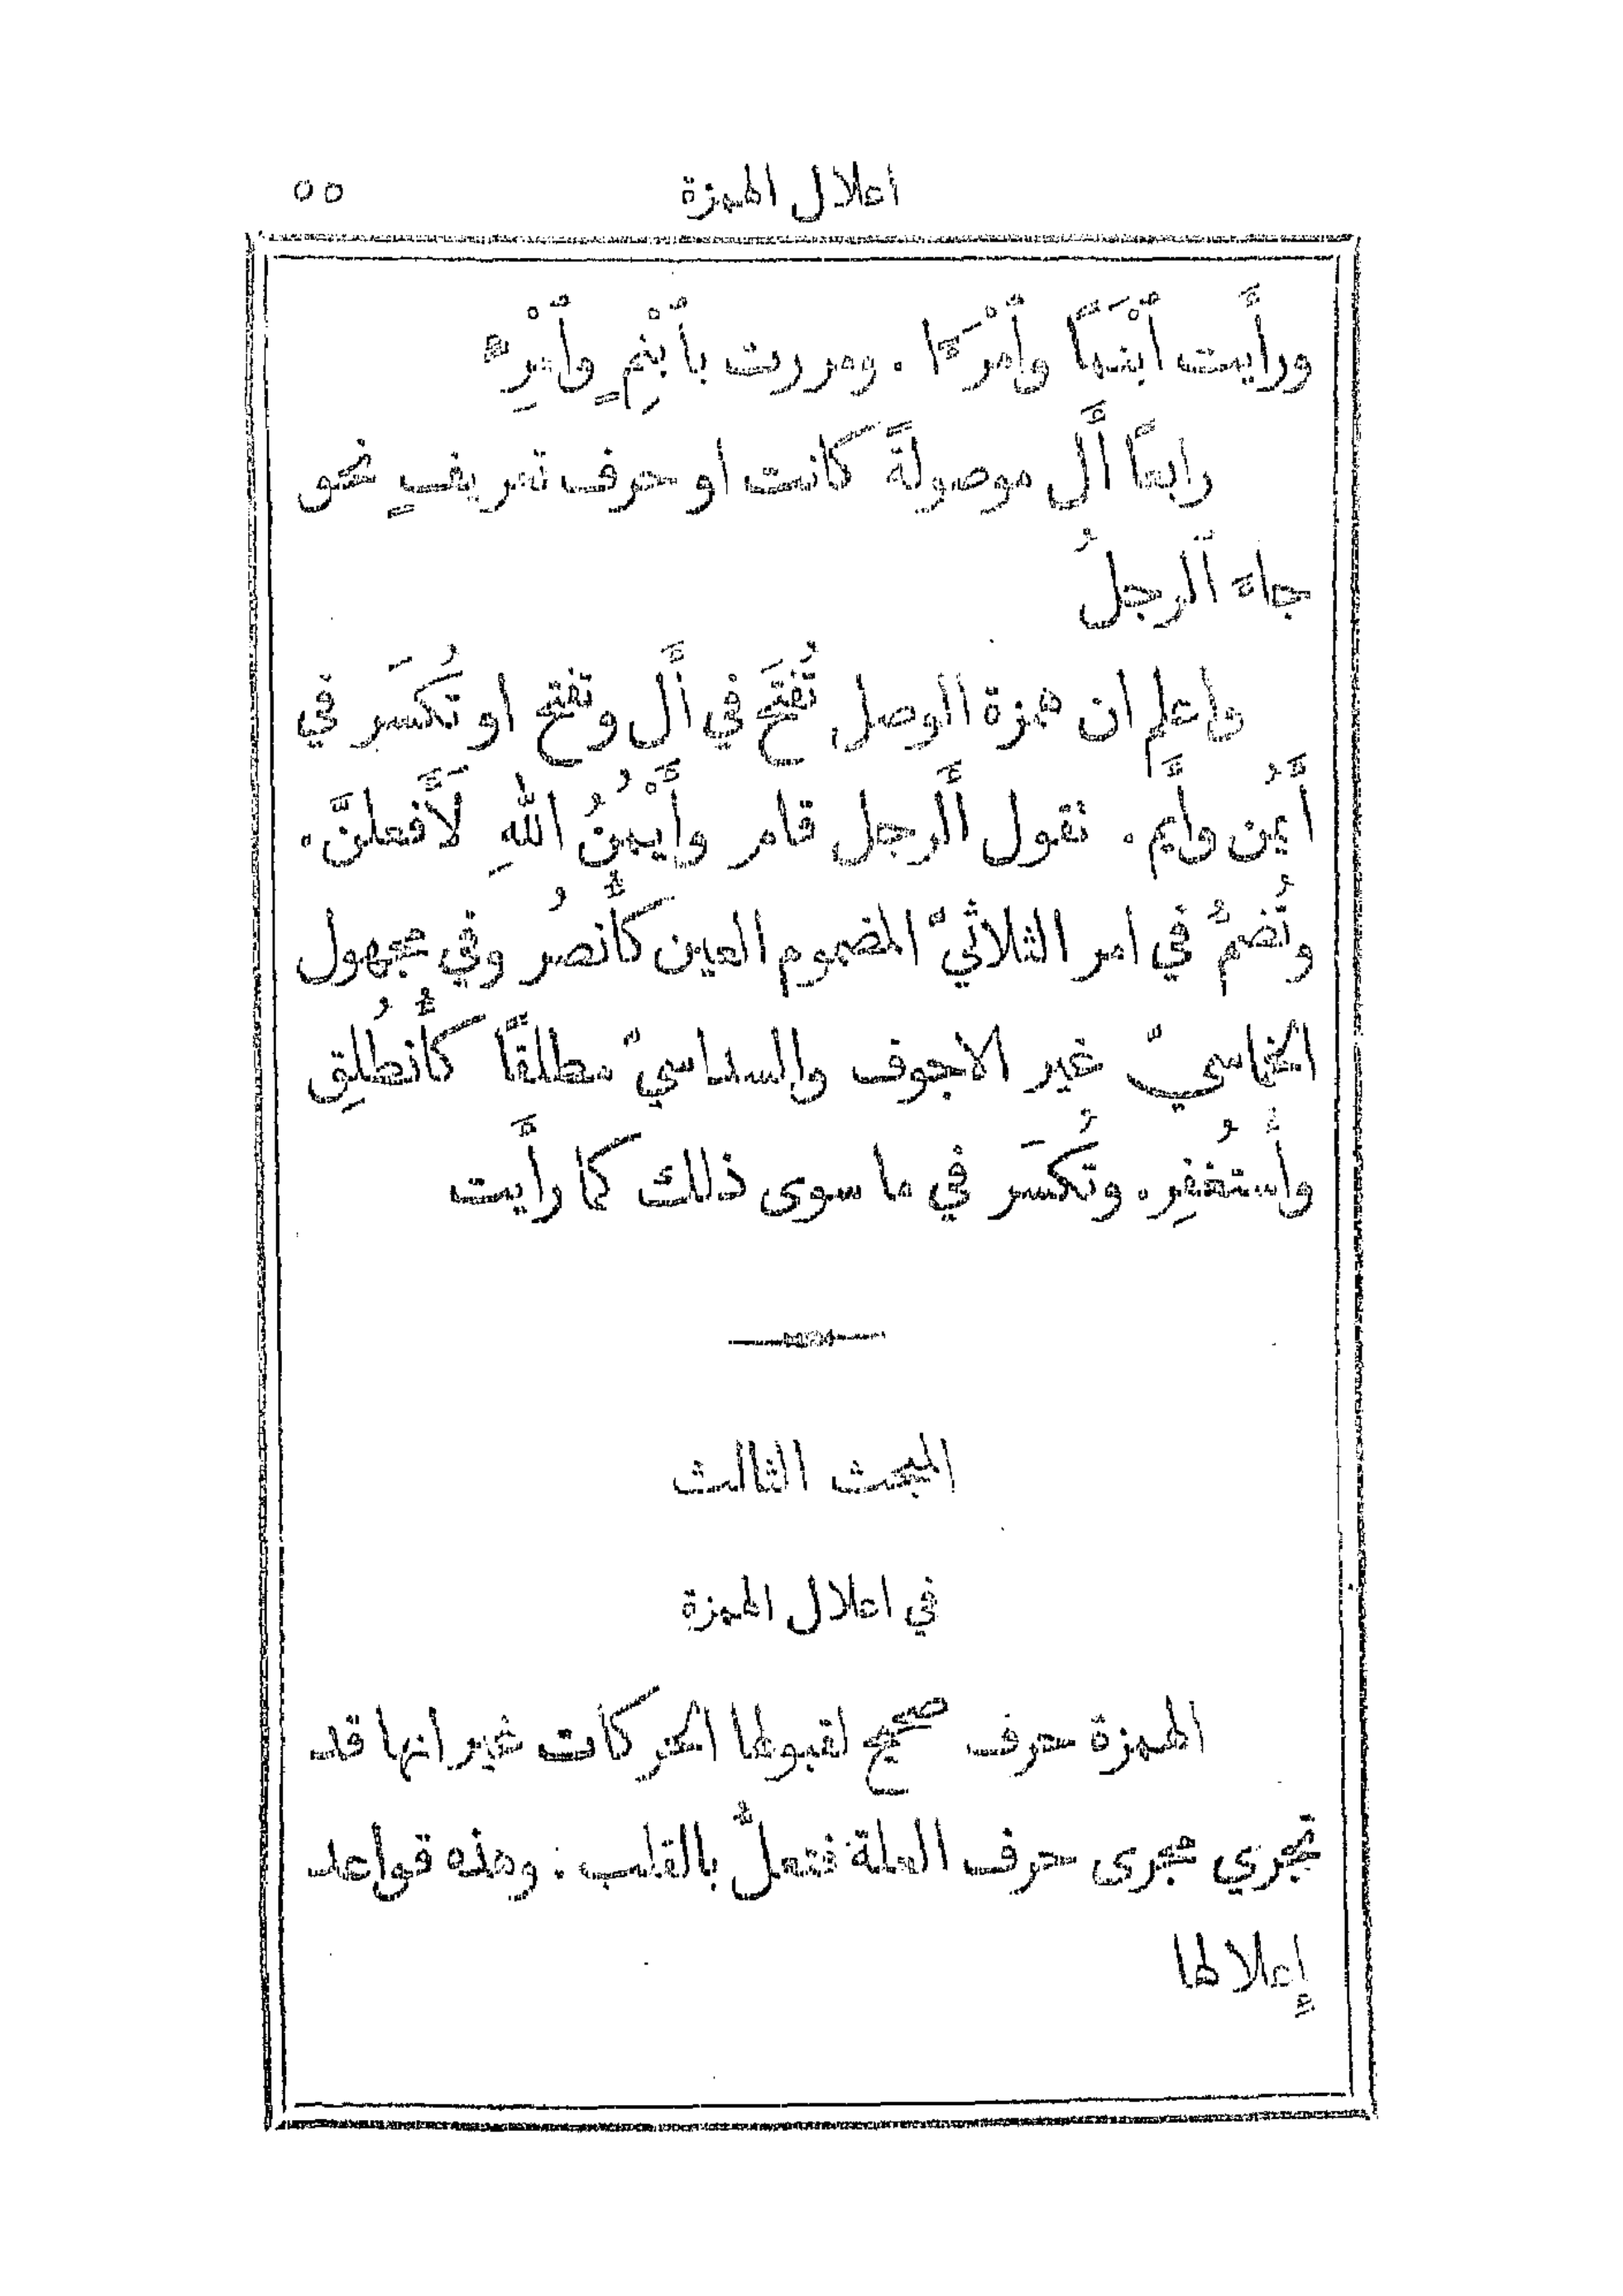 اعلال الهمزة ٥٥
ورأَيت ٱبْنَمًا وٱمْرَءًا . ومررت بٱبْنِمٍ وٱمْرِءٍ
رابعًا أَل موصولةً كانت او حرف تعريفٍ نحو
جاء ٱلرجلُ
واعلم ان همزة الوصل تُفتَح في أَل وتفتح او تُكسَر في
أَيمُن وأَيم . تقول أَلرجل قام وأَيْمُنُ اللهِ لَأَفعلنَّ .
وتُضمُّ في امر الثلاثيّ المضموم العين كأُنصُر وفي مجهول
الخماسيّ غير الاجوف والسداسيّ مطلقًا كأُنطُلِق
وأُستُغفِر . وتُكسَر في ما سوى ذلك كما رأَيت
المبحث الثالث
في اعلال الهمزة
الهمزة حرف صحيح لقبولها الحركات غير انها قد
تجري مجرى حرف العلة فتعلُّ بالقلب : وهذه قواعد
إعلالها